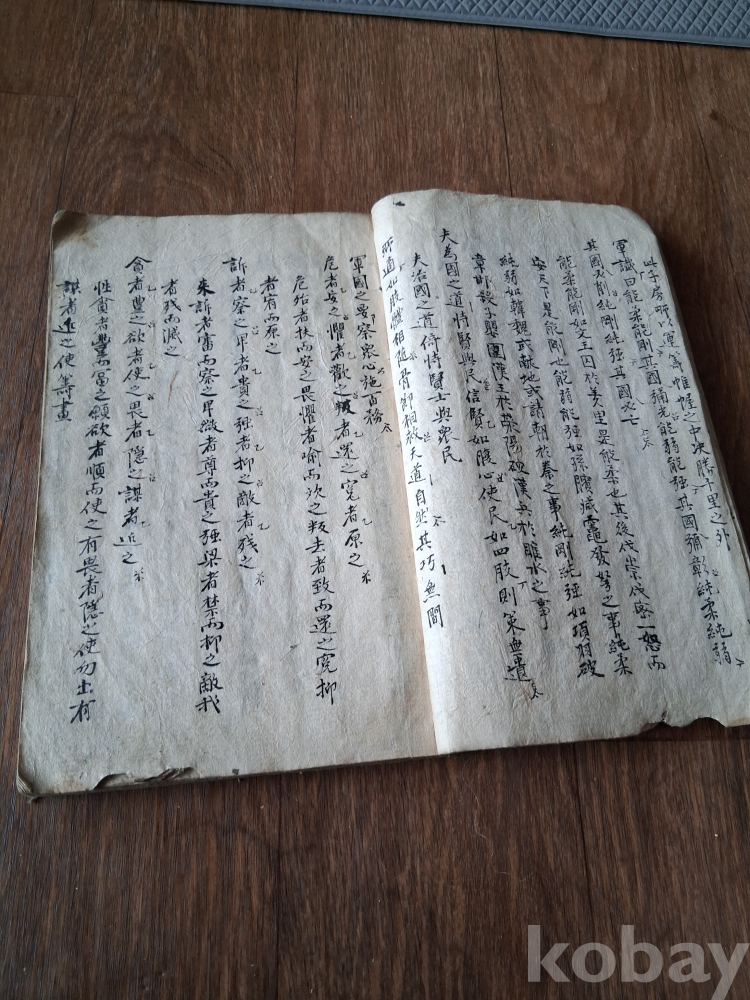 此子房所以運籌帷幄之中決勝千里之外
軍讖曰能柔能剛其國彌光能弱能强其國彌彰純柔純弱
其國必削純剛純强其國必亡
能柔能剛如文王囚於羑里是能柔也其後伐崇伐密一怒而
安天下是能剛也能弱能强如孫臏減竈發弩之事純柔
純弱如韓 或献地或請朝於秦之事純剛純强如項羽破
章邯 圍漢王於榮陽破漢兵於睢水之事
夫為國之道恃賢與民信賢如腹心使民如四肢則策無遺
夫治國之道倚恃賢士與衆民
所適如肢體相随骨節相救天道自然其巧無間
軍國之要察衆心施百務
危者安之懼者歡之叛者還之寃者原之
危殆者扶而安之畏懼者喻而 之叛去者致而還之寃抑
者宥而原之
訴者察之卑者貴之强者抑之敵者残之
来訴者審而察之卑微者尊而貴之强梁者禁而抑之敵我
者残而滅之
貪者豊之欲者使之畏者隱之謀者近之
性貪者豊而冨之願欲者順而使之有畏者隱之使勿出有
謀者近之使籌畫
kobay